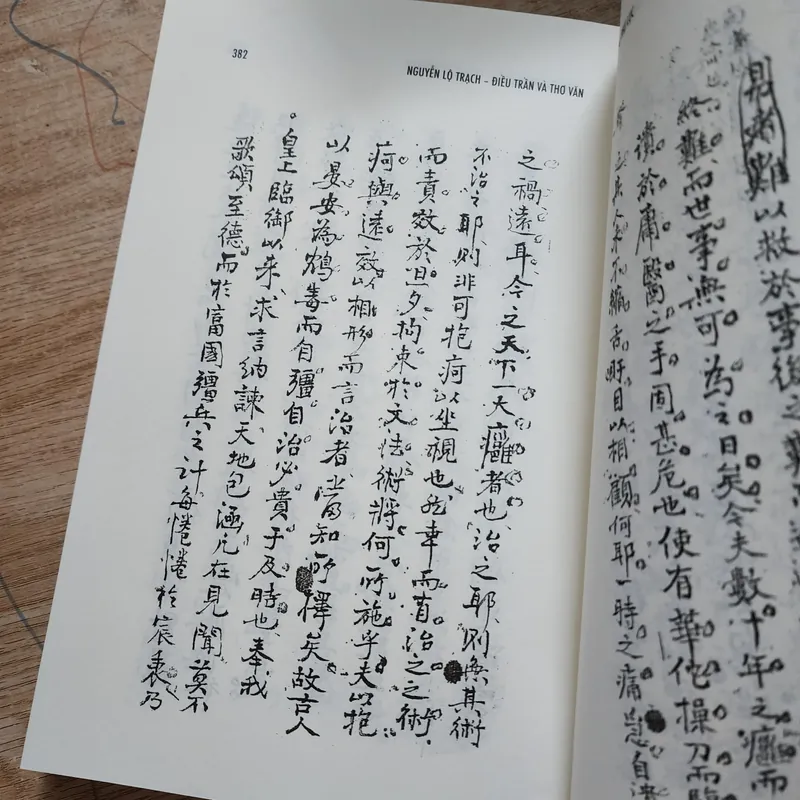 382
NGUYỄN LỘ TRẠCH – ĐIỀU TRẦN VÀ THƠ VĂN
之禍遠耳今之天下一大癰者也治之耶則無其術
不治之耶則非可抱疴以坐視也然幸而有治之之術
而責效於旦夕拘束於文法術將何所施乎夫以抱
疴與遠效以相形而言治者當知所擇矣故言人
以晏安為鴆毒而自彊自治必貴于及時也奉我
皇上臨御以來求言納諫天地包涵凡在見聞莫不
歌頌至德而於富國彊兵之計每惓惓於宸衷乃
難以救於事後之
終難而世事無可為之日矣今夫數十年之癰而
潰於庸醫之手固甚危也使有華佗操刀而臨
之其不縮舌盱目以相顧何耶一時之痛自